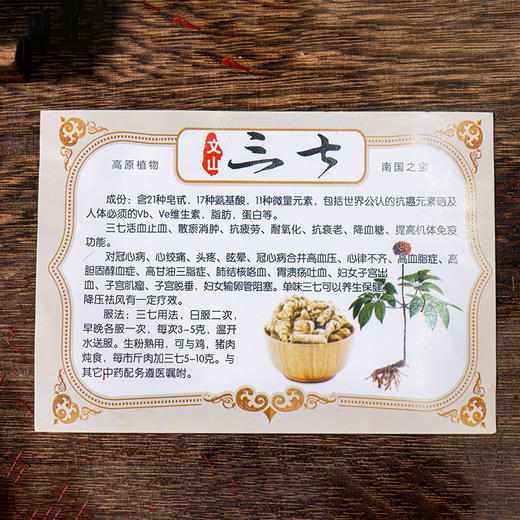 高原植物
文山
三七
南国之宝
成份：含21种皂甙，17种氨基酸，11种微量元素，包括世界公认的抗癌元素硒及
人体必须的Vb、Ve维生素，脂肪，蛋白等。
三七活血止血、散瘀消肿、抗疲劳、耐氧化、抗衰老、降血糖、提高机体免疫
功能。
对冠心病、心绞痛、头疼、眩晕、冠心病合并高血压、心律不齐、高血脂症、高
胆固醇血症、高甘油三脂症、肺结核咯血、胃溃疡吐血、妇女子宫出
血、子宫肌瘤、子宫脱垂，妇女输卵管阻塞。单味三七可以养生保健、
降压祛风有一定疗效。
服法：三七用法，日服二次，
早晚各服一次，每次3-5克，温开
水送服。生粉熟用，可与鸡，猪肉
炖食，每市斤肉加三七5-10克。与
其它中药配务遵医嘱咐。